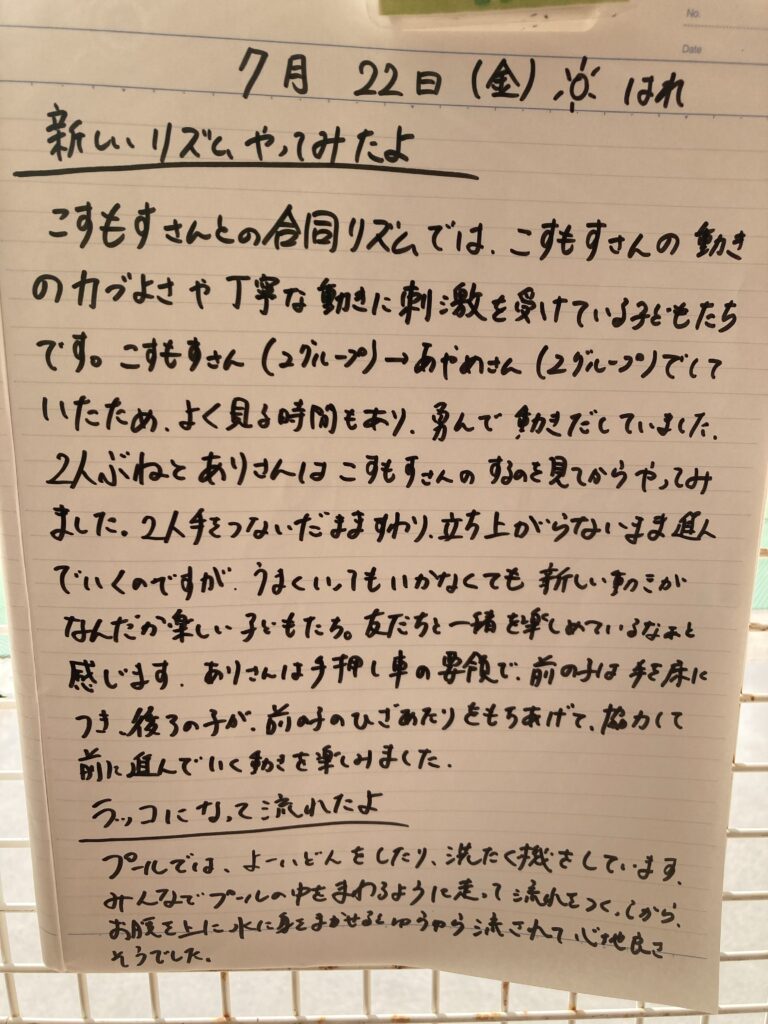 No.
Date
7月 22日 (金) はれ
新しいリズムやってみたよ
こすもすさんとの合同リズムでは、こすもすさんの動き
の力づよさや丁寧な動きに刺激を受けている子どもたち
です。こすもすさん (2グループ)→あやめさん (2グループ)でして
いたため、よく見る時間もあり、勇んで動きだしていました。
2人ぶねとありさんはこすもすさんのするのを見てからやってみ
ました。2人手をつないだまますわり、立ち上がらないまま進ん
でいくのですが、うまくいってもいかなくても新しい動きが
なんだか楽しい子どもたち。友だちと一緒を楽しめているなぁと
感じます。ありさんは手押し車の要領で、前の子は手を床に
つき、後ろの子が、前の子のひざあたりをもちあげて、協力して
前に進んでいく動きを楽しみました。
ラッコになって流れたよ
プールでは、よーいどんをしたり、洗たく機をしています。
みんなでプールの中をまわるように走って流れをつくってから、
お腹を上に水に身をまかせるとゆらゆら流されて心地良さ
そうでした。